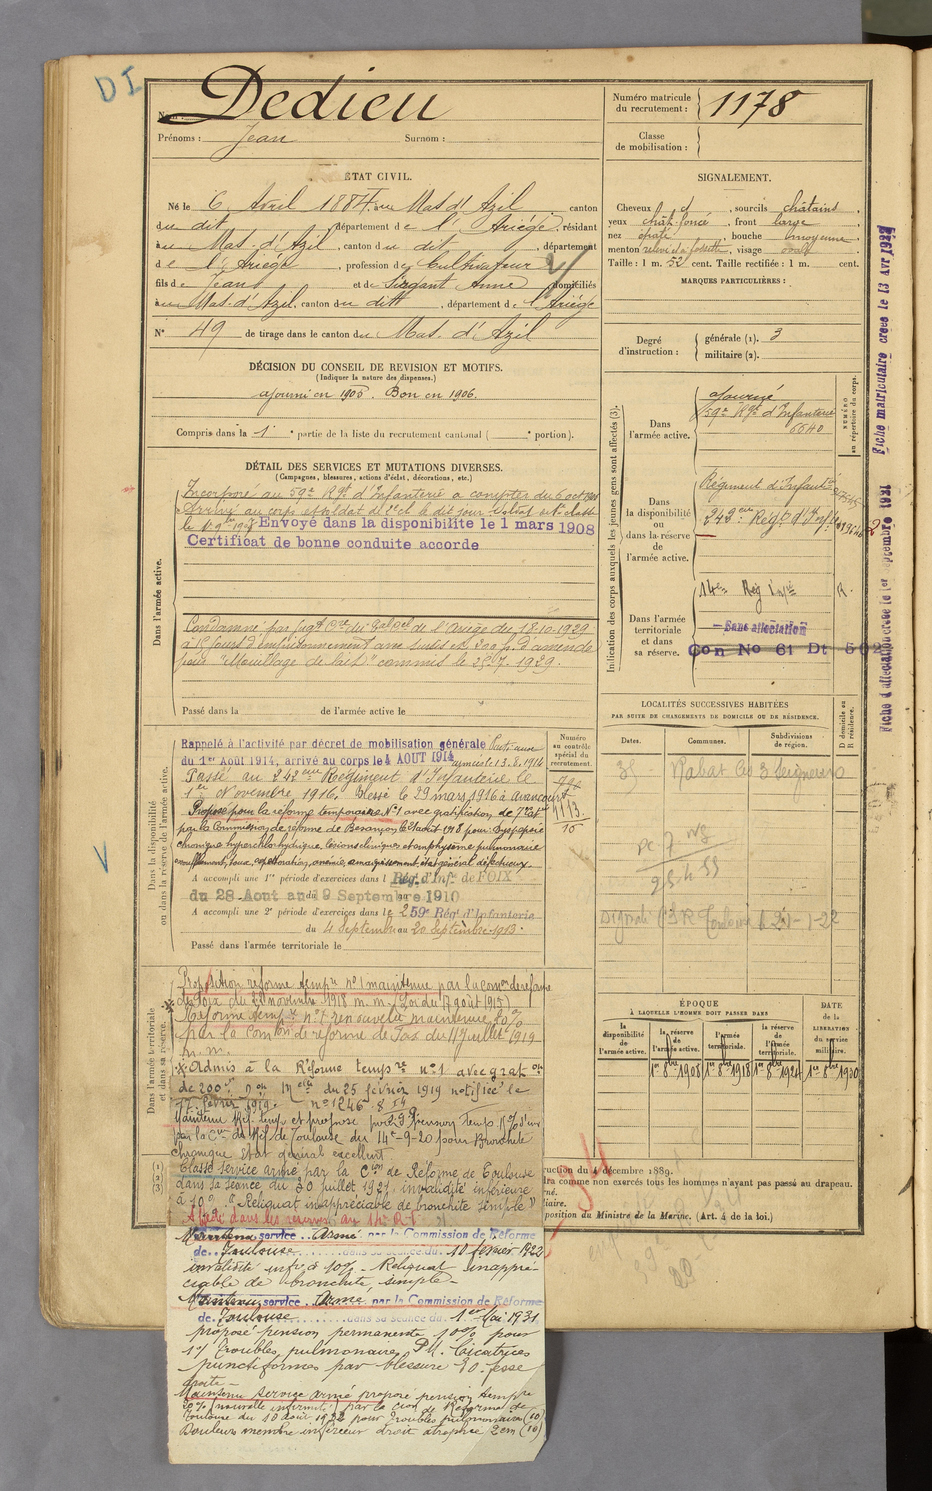 DI
Nom : Dedieu
Prénoms : Jean Surnom :
Numéro matricule du recrutement : 1178
Classe de mobilisation :
ÉTAT CIVIL.
Né le 6 Avril 1884, au Mas d'Azil canton
du dit, département de l'Ariège, résidant
au Mas-d'Azil, canton du dit, département
de l'Ariège, profession de Cultivateur
fils de Jean et de Sirgant Anne domiciliés
au Mas-d'Azil, canton du dit, département de l'Ariège
N° 49 de tirage dans le canton du Mas-d'Azil
SIGNALEMENT.
Cheveux d, sourcils châtains,
yeux chât. foncé, front large,
nez épaté, bouche moyenne,
menton relevé à fossette, visage oval.
Taille : 1 m. 52 cent. Taille rectifiée : 1 m. cent.
MARQUES PARTICULIÈRES :
Degré d'instruction : générale (1). 3
militaire (2).
DÉCISION DU CONSEIL DE REVISION ET MOTIFS.
(Indiquer la nature des dispenses.)
ajourné en 1905. Bon en 1906.
Compris dans la 1e partie de la liste du recrutement cantonal ( e portion).
DÉTAIL DES SERVICES ET MUTATIONS DIVERSES.
(Campagnes, blessures, actions d'éclat, décorations, etc.)
Dans l'armée active.
Incorporé au 59e Rgt d'Infanterie à compter du 6 oct 1906
Arrivé au corps et soldat de 2e cl. le dit jour. Soldat de 1e classe
le 1er 9bre 1907 Envoyé dans la disponibilite le 1 mars 1908
Certificat de bonne conduite accorde
Condamné par jugt Cre du de l'Ariège du 18-10-1929
à 15 jours d'emprisonnement avec sursis et 200 f. d'amende
pour "Mouillage de lait" commis le 25.7.1929.
Passé dans la de l'armée active le
Indication des corps auxquels les jeunes gens sont affectés (3).
NUMÉRO au répertoire du corps.
Dans l'armée active.
ajourné
59e Rgt d'Infanterie
6640
Dans la disponibilité ou dans la réserve de l'armée active.
Régiment d'Infante
249eme Regt d'Infie
Dans l'armée territoriale et dans sa réserve.
14e Reg Infie
R.
Sans affectation
Con No 61 Dt 502
Fiche matriculaire créée le 13 Avr 1932
Fiche d'affectation créée le 1er septembre 1931
2
LOCALITÉS SUCCESSIVES HABITÉES
PAR SUITE DE CHANGEMENTS DE DOMICILE OU DE RÉSIDENCE.
Dates. Communes. Subdivisions de région. D domicile ou R résidence.
35 Rabat les 3 Seigneurs
Signalé CSR Toulouse le 21-1-22
Dans la disponibilité ou dans la réserve de l'armée active.
Numéro au contrôle spécial du recrutement.
Rappelé à l'activité par décret de mobilisation générale Parti aux
du 1er Août 1914, arrivé au corps le 4 AOUT 1914 armées le 13.8.1914
Passé au 242eme Régiment d'Infanterie le
1er Novembre 1916. Blessé le 29 mars 1916 à avancourt
Proposé pour la réforme temporaire N°1 avec gratification de 7e cat
par la Commission de réforme de Besançon le août 1918 pour: dyspepsie
chronique hyperchlorhydrique, lésions cliniques et emphysème pulmonaire
essoufflement, toux, expectoration, anémie, amaigrissement, état général défectueux.
1113
A accompli une 1re période d'exercices dans l Rég. d'Inf. de FOIX
du 28 Aout au 9 Septembre 1910
A accompli une 2e période d'exercices dans le 259e Régt d'Infanterie
du 4 Septembre au 20 Septembre 1913.
Passé dans l'armée territoriale le
Dans l'armée territoriale et dans sa réserve.
Proposition réforme tempre n°1 maintenue par la comon de réforme
de Foix du 22 novembre 1918 m. m. (Loi du 7 août 1915)
Réforme tempre n°1 renouvelée maintenue 20%
par la Comon de réforme de Foix du 11 juillet 1919
m. m.
Admis à la Réforme tempre n°1 avec graton
de 200f du 25 février 1919 notifiée le
n° 1246
Maintenu Ref. temp et proposé pour pension temp
par la Con de Ref de Toulouse du 14-9-20 pour Bronchite
chronique état général excellent
Classé service armé par la Con de Réforme de Toulouse
dans sa séance du 20 juillet 1921, invalidité inférieure
à 10% "Reliquat inappréciable de bronchite simple"
Affecté dans les réserves au 14e R.I
Maintenu service Armé par la Commission de Réforme
de Toulouse dans sa séance du 10 février 1922
invalidité infre à 10% - Reliquat inappré-
ciable de bronchite simple -
Maintenu service Armé par la Commission de Réforme
de Toulouse dans sa séance du 1er Mai 1931
proposé pension permanente 10% pour
1°/ Troubles pulmonaires. 2°/ Cicatrices
punctiformes par blessure fesse
droite -
Maintenu service armé proposé pension tempre
20% (nouvelle infirmité) par la con de Réforme de
Toulouse du 18 août 1932 pour troubles pulmonaires (10)
Douleurs membre inférieur droit atrophie 2 cm (10)
ÉPOQUE
À LAQUELLE L'HOMME DOIT PASSER DANS
DATE de la LIBÉRATION du service militaire.
la disponibilité de l'armée active. la réserve de l'armée active. l'armée territoriale. la réserve de l'armée territoriale.
1er 8bre 1908 1er 8bre 1918 1er 8bre 1924 1er 8bre 1930
ruction du 4 décembre 1889.
dra comme non exercés tous les hommes n'ayant pas passé au drapeau.
rné.
iliaire.
position du Ministre de la Marine. (Art. 4 de la loi.)